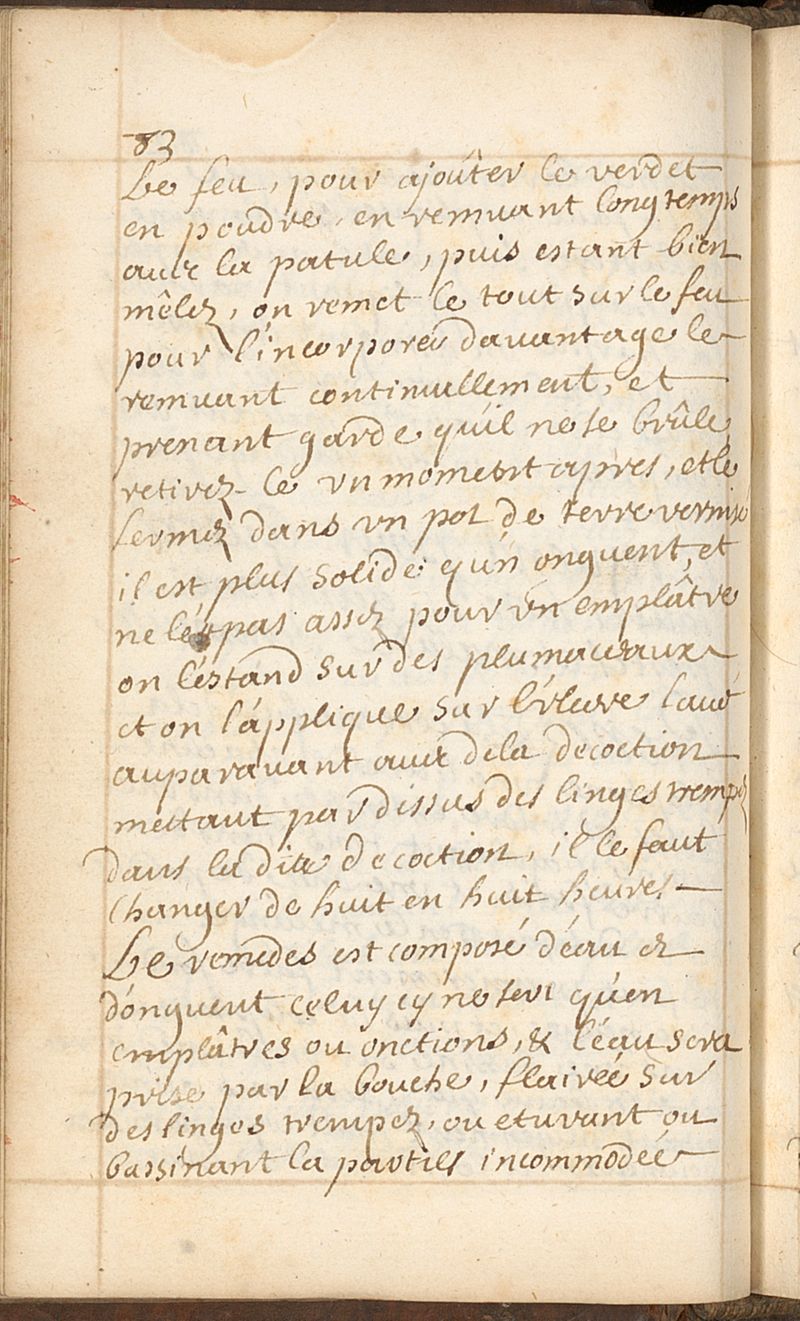 83
Le feu, pour ajoûter le verdet
en poudre, en remuant longtemps
avec la patule, puis estant bien
mêlez, on remet le tout sur le feu
pour l'incorporer davantage le
remuant continuellement, et
prenant garde qu'il ne se brûle,
retirez-le un moment apres, et le
fermez dans un pot de terre vernisé
il est plus solide qu'un onguent, et
ne l'est pas assez pour un emplâtre
on l'éstand sur des plumaceaux
et on l'applique sur l'úlcere lavé
auparavant avec de la decoction
mettant par dissus des linges trempez
dans la dite decoction, il le faut
Changer de huit en huit heures
Le remedes est composé d'eau et
d'onguent celuy cy ne sert qu'en
emplâtres ou onctions, & l'eau sera
prise par la bouche, flairée sur
des linges trempez, ou etuvant ou
bassinant la parties incommodée